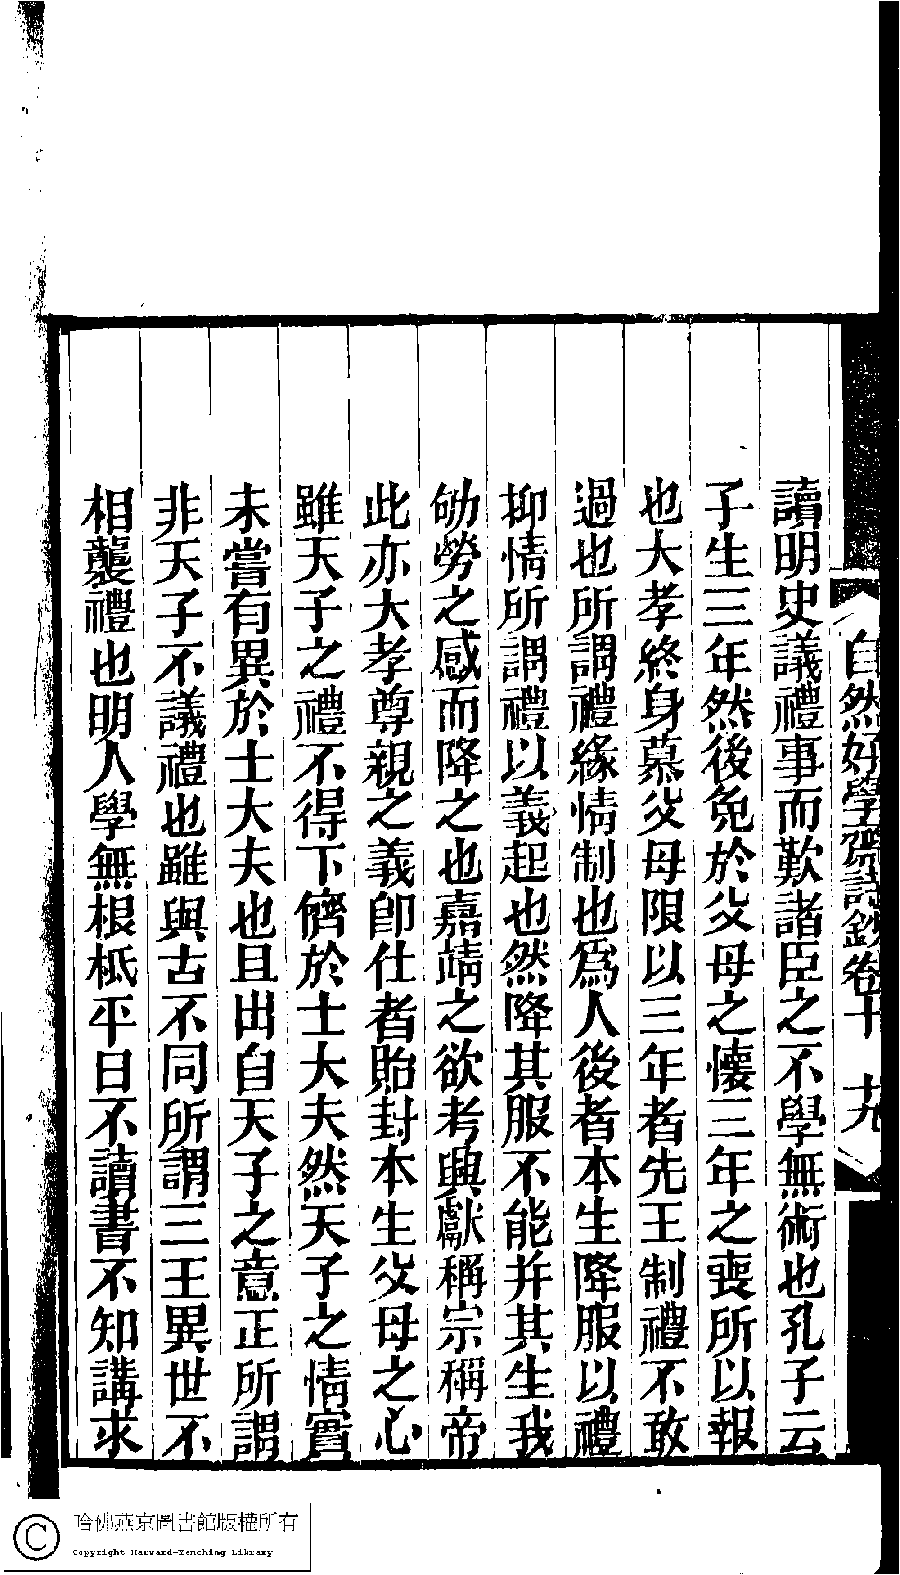 自然好學齋詩鈔卷十 十九
讀明史議禮事而歎諸臣之不學無術也孔子云
子生三年然後免於父母之懷三年之喪所以報
也大孝終身慕父母限以三年者先王制禮不敢
過也所謂禮緣情制也為人後者本生降服以禮
抑情所謂禮以義起也然降其服不能并其生我
劬勞之感而降之也嘉靖之欲考興獻稱宗稱帝
此亦大孝尊親之義卽仕者貽封本生父母之心
雖天子之禮不得下儕於士大夫然天子之情實
未嘗有異於士大夫也且出自天子之意正所謂
非天子不議禮也雖與古不同所謂三王異世不
相襲禮也明人學無根柢平日不讀書不知講求
哈佛燕京圖書館版權所有
Copyright Harvard-Yenching Library